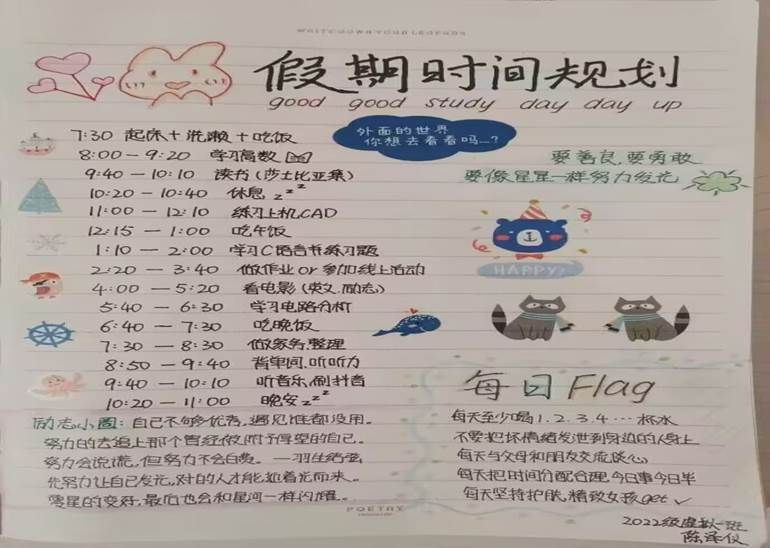 WRITE DOWN YOUR LEGENDS
假期时间规划
good good study day day up
外面的世界
你想去看看吗...?
要善良,要勇敢
要像星星一样努力发光
7:30 起床+洗漱+吃饭
8:00—9:20 学习高数
9:40—10:10 读书(莎士比亚集)
10:20—10:40 休息zzz
11:00—12:10 练习上机CAD
12:15—1:00 吃午饭
1:10—2:00 学习C语言书练习题
2:20—3:40 做作业or参加线上活动
4:00—5:20 看电影(英文.励志)
5:40—6:30 学习电路分析
6:40—7:30 吃晚饭
7:30—8:30 做家务,整理
8:50—9:40 背单词.听听力
9:40—10:10 听音乐,刷抖音
10:20—11:00 晚安zzz
HAPPY?
励志小圈:自己不够优秀,遇见谁都没用。
努力的去追上那个曾经被赋予厚望的自己。
努力会说谎,但努力不会白费。—羽生结弦
先努力让自己发光,对的人才能迎着光而来。
零星的变好,最后也会和星河一样闪耀。
每日Flag
每天至少喝1.2.3.4…杯水
不要把坏情绪发泄到身边的人身上
每天与父母和朋友交流谈心
每天把时间分配合理,今日事今日毕
每天坚持护肤,精致女孩get✓
POETRY
2022级虚拟一班
陈泽仪